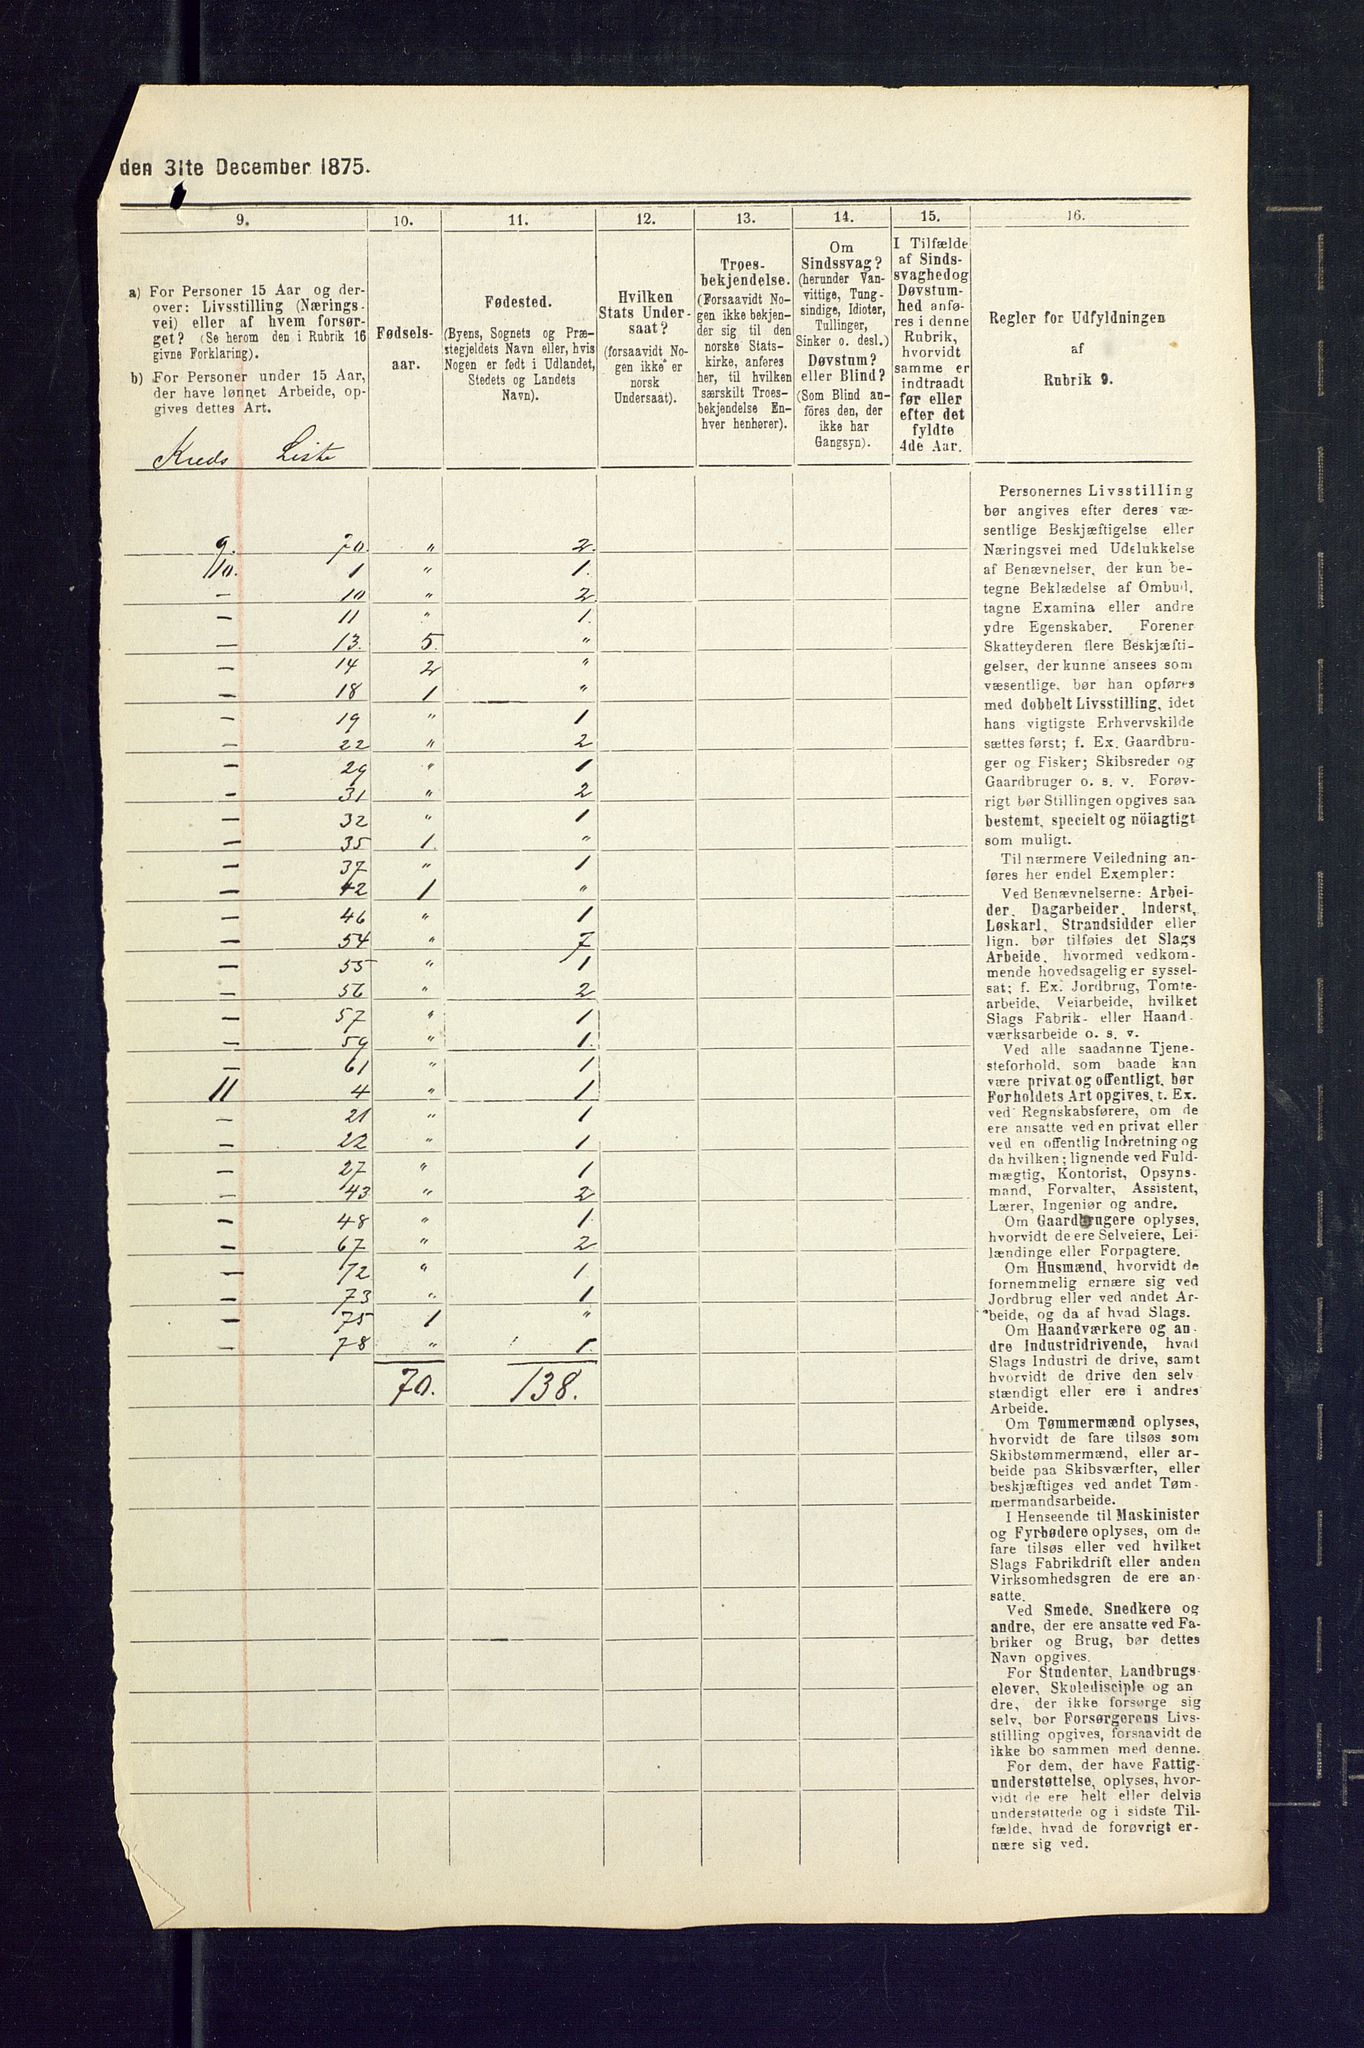 den 31te December 1875.
9. 10. 11. 12. 13. 14. 15. 16.
a) For Personer 15 Aar og der-
over: Livsstilling (Nærings-
vei) eller af hvem forsør-
get? (Se herom den i Rubrik 16
givne Forklaring).
b) For Personer under 15 Aar,
der have lønnet Arbeide, op-
gives dettes Art.
Kreds Liste
Fødsels-
aar.
Fødested.
(Byens, Sognets og Præ-
stegjeldets Navn eller, hvis
Nogen er født i Udlandet,
Stedets og Landets
Navn).
Hvilken
Stats Under-
saat?
(forsaavidt No-
gen ikke er
norsk
Undersaat).
Troes-
bekjendelse.
(Forsaavidt No-
gen ikke bekjen-
der sig til den
norske Stats-
kirke, anføres
her, til hvilken
særskilt Troes-
bekjendelse En-
hver henhører).
Om
Sindssvag?
(herunder Van-
vittige, Tung-
sindige, Idioter,
Tullinger,
Sinker o. desl.)
Døvstum?
eller Blind?
(Som Blind an-
føres den, der
ikke har
Gangsyn).
I Tilfælde
af Sinds-
svaghed og
Døvstum-
hed anfø-
res i denne
Rubrik,
hvorvidt
samme er
indtraadt
før eller
efter det
fyldte
4de Aar.
Regler for Udfyldningen
af
Rubrik 9.
9. 70. " 2.
10. 1 " 1.
— 10 " 2
— 11 " 1.
— 13. 5. "
— 14 2 "
— 18 1 "
— 19 " 1
— 22 " 2
— 29 " 1
— 31 " 2
— 32 " 1
— 35 1. "
— 37 " 1
— 42 1 "
— 46 " 1
— 54 " 7
— 55 " 1
— 56 " 2
— 57 " 1
— 59 " 1.
— 61 " 1
11 4 " 1
— 21 " 1
— 22 " 1
— 27 " 1
— 43 " 2
— 48 " 1.
— 67 " 2
— 72 " 1.
— 73 " 1
— 75 1 "
— 78 " 1.
70. 138.
Personernes Livsstilling
bør angives efter deres væ-
sentlige Beskjæftigelse eller
Næringsvei med Udelukkelse
af Benævnelser, der kun be-
tegne Beklædelse af Ombud,
tagne Examina eller andre
ydre Egenskaber. Forener
Skatteyderen flere Beskjæfti-
gelser, der kunne ansees som
væsentlige, bør han opføres
med dobbelt Livsstilling, idet
hans vigtigste Erhvervskilde
sættes først; f. Ex. Gaardbru-
ger og Fisker; Skibsreder og
Gaardbruger o. s. v. Forøv-
rigt bør Stillingen opgives saa
bestemt, specielt og nöiagtigt
som muligt.
Til nærmere Veiledning an-
føres her endel Exempler:
Ved Benævnelserne: Arbei-
der, Dagarbeider, Inderst,
Løskarl, Strandsidder eller
lign. bør tilføies det Slags
Arbeide, hvormed vedkom-
mende hovedsagelig er syssel-
sat; f. Ex. Jordbrug, Tomte-
arbeide, Veiarbeide, hvilket
Slags Fabrik- eller Haand-
værksarbeide o. s. v.
Ved alle saadanne Tjene-
steforhold, som baade kan
være privat og offentligt, bør
Forholdets Art opgives, t. Ex.
ved Regnskabsførere, om de
ere ansatte ved en privat eller
ved en offentlig Indretning og
da hvilken; lignende ved Fuld-
mægtig, Kontorist, Opsyns-
mand, Forvalter, Assistent,
Lærer, Ingeniør og andre.
Om Gaardbrugere oplyses,
hvorvidt de ere Selveiere, Lei-
lændinge eller Forpagtere.
Om Husmænd, hvorvidt de
fornemmelig ernære sig ved
Jordbrug eller ved andet Ar-
beide, og da af hvad Slags.
Om Haandværkere og an-
dre Industridrivende, hvad
Slags Industri de drive, samt
hvorvidt de drive den selv-
stændigt eller ere i andres
Arbeide.
Om Tømmermænd oplyses,
hvorvidt de fare tilsøs som
Skibstømmermænd, eller ar-
beide paa Skibsværfter, eller
beskjæftiges ved andet Tøm-
mermandsarbeide.
I Henseende til Maskinister
og Fyrbødere oplyses, om de
fare tilsøs eller ved hvilket
Slags Fabrikdrift eller anden
Virksomhedsgren de ere an-
satte.
Ved Smede, Snedkere og
andre, der ere ansatte ved Fa-
briker og Brug, bør dettes
Navn opgives.
For Studenter, Landbrugs-
elever, Skoledisciple og an-
dre, der ikke forsørge sig
selv, bør Forsørgerens Livs-
stilling opgives, forsaavidt de
ikke bo sammen med denne.
For dem, der have Fattig-
understøttelse, oplyses, hvor-
vidt de ere helt eller delvis
understøttede og i sidste Til-
fælde, hvad de forøvrigt er-
nære sig ved.